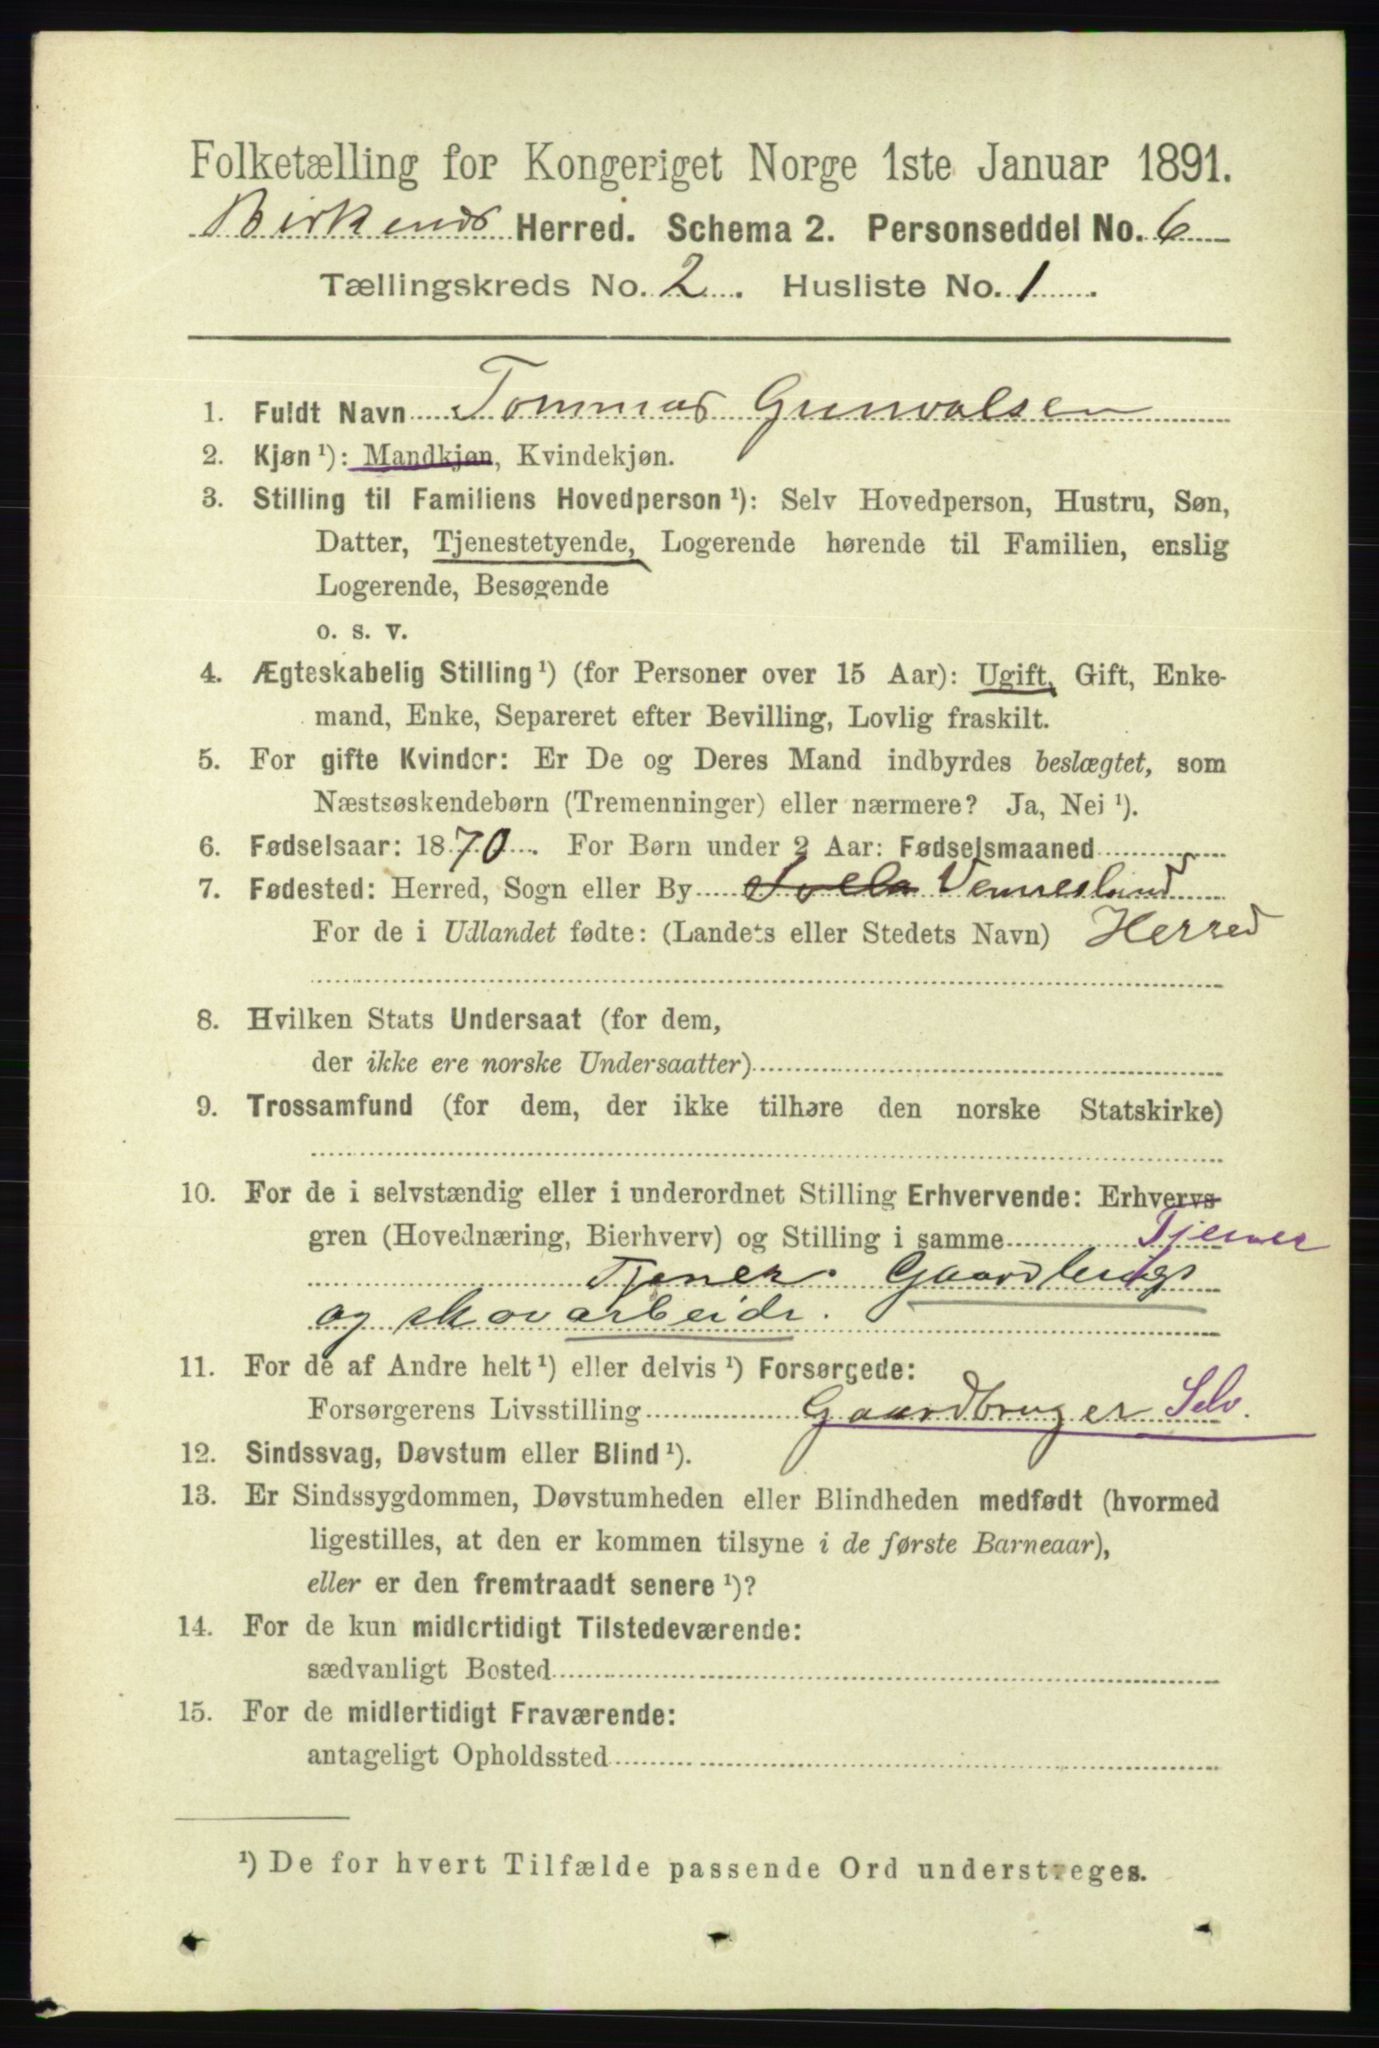 Folketælling for Kongeriget Norge 1ste Januar 1891.
Birkenes Herred. Schema 2. Personseddel No. 6
Tællingskreds No. 2. Husliste No. 1.
1. Fuldt Navn Tommas Gunvalsen
2. Kjøn ¹): Mandkjøn, Kvindekjøn.
3. Stilling til Familiens Hovedperson ¹): Selv Hovedperson, Hustru, Søn,
Datter, Tjenestetyende, Logerende hørende til Familien, enslig
Logerende, Besøgende
o. s. v.
4. Ægteskabelig Stilling ¹) (for Personer over 15 Aar): Ugift, Gift, Enke-
mand, Enke, Separeret efter Bevilling, Lovlig fraskilt.
5. For gifte Kvinder: Er De og Deres Mand indbyrdes beslægtet, som
Næstsøskendebørn (Tremenninger) eller nærmere? Ja, Nei ¹).
6. Fødselsaar: 1870. For Børn under 2 Aar: Fødselsmaaned
7. Fødested: Herred, Sogn eller By Vennesland
For de i Udlandet fødte: (Landets eller Stedets Navn) Herred
8. Hvilken Stats Undersaat (for dem,
der ikke ere norske Undersaatter)
9. Trossamfund (for dem, der ikke tilhøre den norske Statskirke)
10. For de i selvstændig eller i underordnet Stilling Erhvervende: Erhvervs
gren (Hovednæring, Bierhverv) og Stilling i samme Tjener
Tjener. Gaardbrugs
og skovarbeide.
11. For de af Andre helt ¹) eller delvis ¹) Forsørgede:
Forsørgerens Livsstilling Gaardbruger Selv.
12. Sindssvag, Døvstum eller Blind ¹).
13. Er Sindssygdommen, Døvstumheden eller Blindheden medfødt (hvormed
ligestilles, at den er kommen tilsyne i de første Barneaar),
eller er den fremtraadt senere ¹)?
14. For de kun midlertidigt Tilstedeværende:
sædvanligt Bosted
15. For de midlertidigt Fraværende:
antageligt Opholdssted
¹) De for hvert Tilfælde passende Ord understreges.